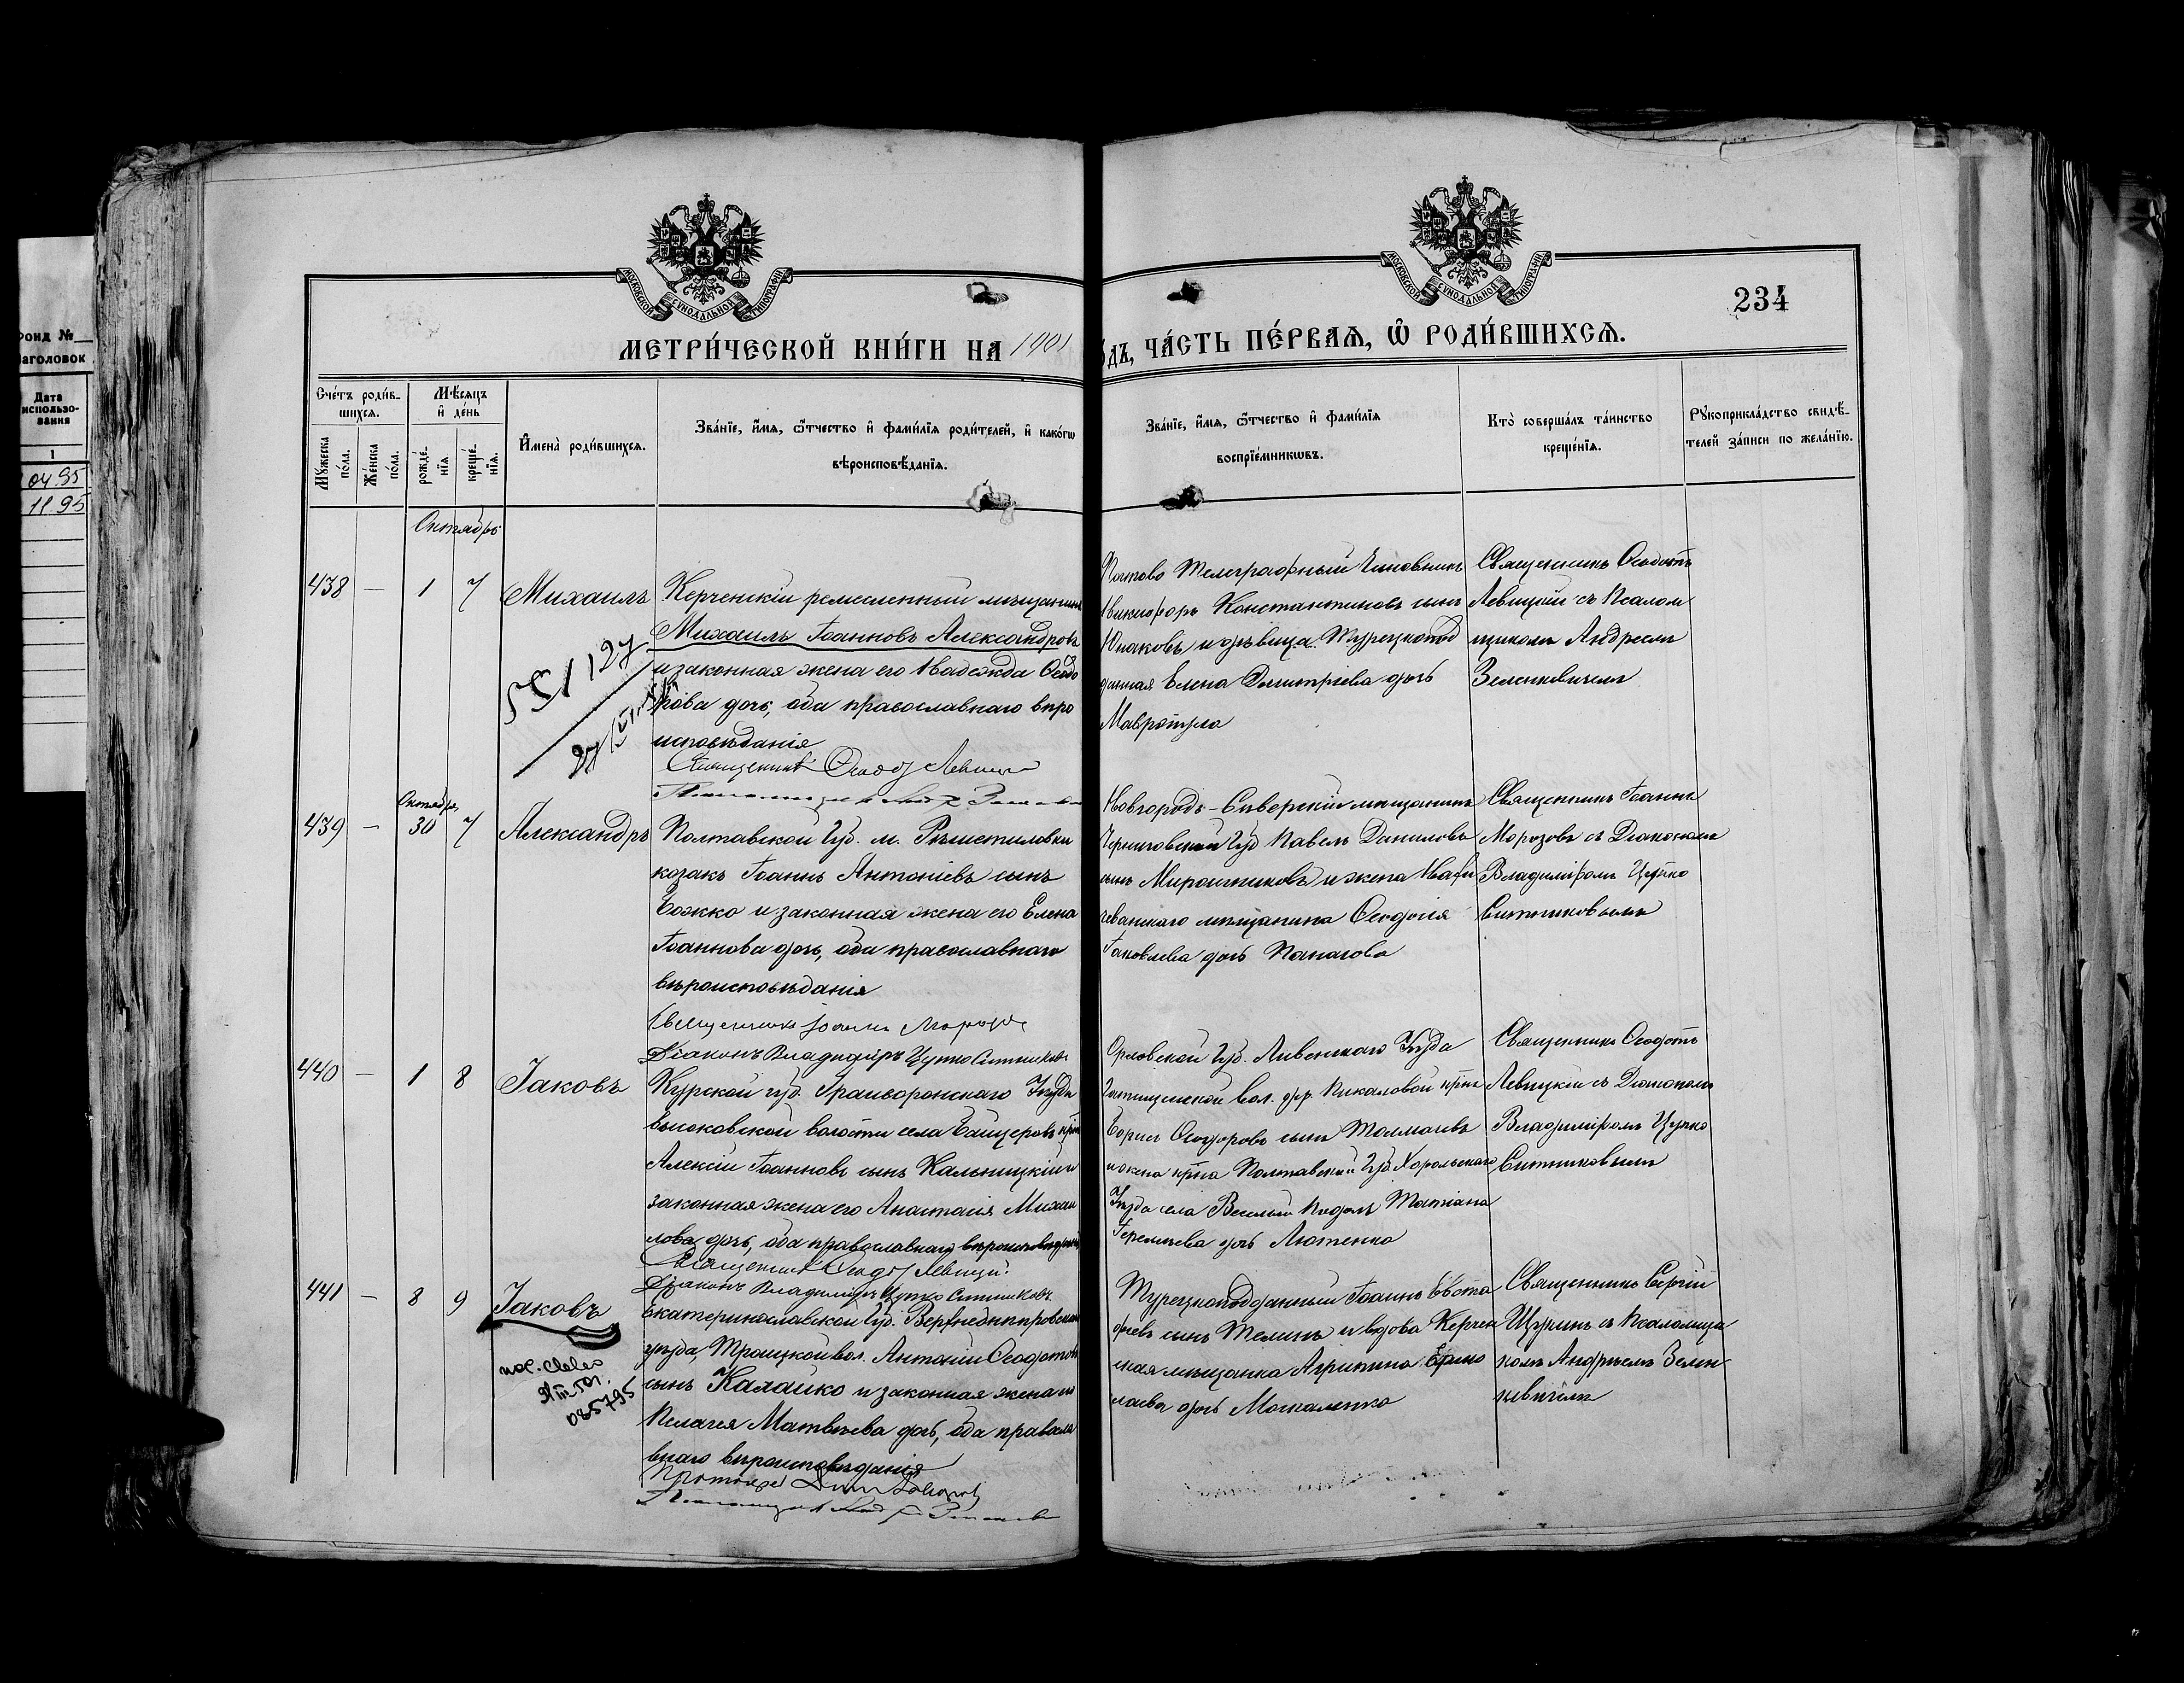 Фонд №
Заголовок
Дата
использо-
вания
1
04 95
11 95
МОСКОВСКОЙ СѴНОДАЛЬНОЙ ТИПОГРАФІИ
МОСКОВСКОЙ СѴНОДАЛЬНОЙ ТИПОГРАФІИ
234
МЕТРИ́ЧЕСКОЙ КНИ́ГИ НА 1901
ГОДЪ, ЧА́СТЬ ПЕ́РВАЯ, Ѽ РОДИ́ВШИХСЯ.
Сче́тъ роди́в-
шихся.
Мꙋ́жеска
по́ла.
Же́нска
по́ла.
Мѣ́сяцъ
и҆ де́нь
рожде́-
нїя
креще́-
нїя.
И҆мена̀ роди́вшихся.
Зва́нїе, и҆́мя, ѻ҆́тчество и҆ фами́лїя роди́телей, и҆ како́гѡ
вѣроисповѣ́данїя.
Зва́нїе, и҆́мя, ѻ҆́тчество и҆ фами́лїя
воспрїе́мникѡвъ.
Кто̀ соверша́лъ та́инство
креще́нїя.
Рꙋкоприкла́дство свидѣ́-
телей за́писи по жела́нїю.
Октябрь
438 — 1 7 Михаилъ
Керченскій ремесленный мѣщанинъ
Михаилъ Іоанновъ Александровъ
и законная жена его Надежда Ѳеодо
рова дочь, оба православнаго вѣро
исповѣданія
Священникъ Ѳеодотъ Левицкій
Почтово Телеграфный Чиновникъ
Никифоръ Константиновъ сынъ
и дѣвица Турецкопод
данная Елена Димитріева дочь
Священникъ Ѳеодотъ
Левицкій съ Псалом
щикомъ Андреемъ
Зеленкевичемъ
Октября
439 — 30 7 Александръ
Полтавской Губ. м. Рѣшетиловки
козакъ Іоаннъ Антоніевъ сынъ
Божко и законная жена его Елена
Іоаннова дочь, оба православнаго
вѣроисповѣданія
Священникъ Іоаннъ Морозовъ
Діаконъ Владиміръ Цупко Ситниковъ
Новгородъ-Сѣверскій мѣщанинъ
Черниговской Губ Павелъ Даниловъ
сынъ Мирошниковъ и жена Нахи
чеванскаго мѣщанина Ѳеодосія
Іаковлева дочь
Священникъ Іоаннъ
Морозовъ съ Діакономъ
Владиміромъ Цупко
Ситниковымъ
440 — 1 8 Іаковъ
Курской губ. Грайворонскаго Уѣзда
Высоковской волости села
Алексій Іоанновъ сынъ Кальницкій и
законная жена его Анастасія Михаи
лова дочь, оба православнаго вѣроисповѣданія
Священникъ Ѳеодотъ Левицкій
Діаконъ Владиміръ Цупко Ситниковъ
Орловской Губ. Ливенскаго Уѣзда
вол. дер. Пикаловой крнъ
Борисъ Ѳеодоровъ сынъ Толмачевъ
и жена крна Полтавской Губ. Хорольскаго
Уѣзда села Веселый Подолъ Татіана
Іереміева дочь Лютенко
Священникъ Ѳеодотъ
Левицкій съ Діакономъ
Владиміромъ Цупко
Ситниковымъ
441 — 8 9 Іаковъ
Екатеринославской Губ. Верхнеднѣпровскаго
уѣзда, Троицкой вол. Антоній Ѳеодотовъ
сынъ Калайко и законная жена его
Пелагея Матвѣева дочь, оба правосла
внаго вѣроисповѣданія
085795
Турецкоподданный Іоаннъ Евста
фіевъ сынъ Телинъ и вдова Керчен
ская мѣщанка Агрипина Ермо
лаева дочь Москаленко
Священникъ Сергій
Щукинъ съ Псаломщи
комъ Андреемъ Зелен
кевичемъ